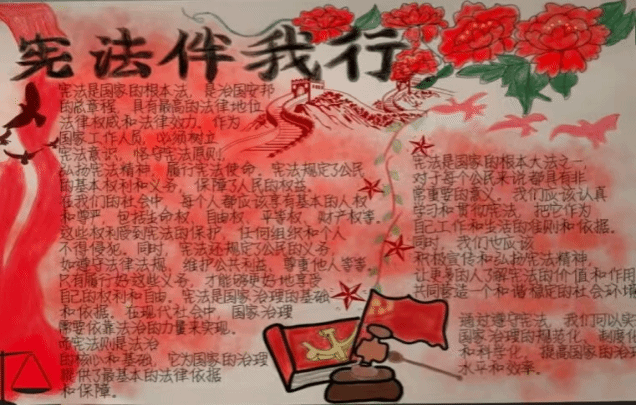 宪法伴我行
宪法是国家的根本法，是治国安邦
的总章程，具有最高的法律地位、
法律权威和法律效力。作为
国家工作人员，必须树立
宪法意识，恪守宪法原则，
弘扬宪法精神，履行宪法使命。宪法规定了公民
的基本权利和义务，保障了人民的权益。
在我们的社会中，每个人都应该享有基本的人权
和尊严，包括生命权、自由权、平等权、财产权等。
这些权利受到宪法的保护，任何组织和个人
不得侵犯。同时，宪法还规定了公民的义务，
如遵守法律法规、维护公共利益、尊重他人等等
只有履行好这些义务，才能够更好地享受
自己的权利和自由。宪法是国家治理的基础
和依据。在现代社会中，国家治理
需要依靠法治的力量来实现。
而宪法则是法治
的核心和基础，它为国家的治理
提供了最基本的法律依据
和保障。
宪法是国家的根本大法之一，
对于每个公民来说都具有非
常重要的意义。我们应该认真
学习和贯彻宪法，把它作为
自己工作和生活的准则和依据。
同时，我们也应该
积极宣传和弘扬宪法精神，
让更多的人了解宪法的价值和作用
共同营造一个和谐稳定的社会环境
通过遵守宪法，我们可以实
国家治理的规范化、制度化
和科学化，提高国家的治
水平和效率。